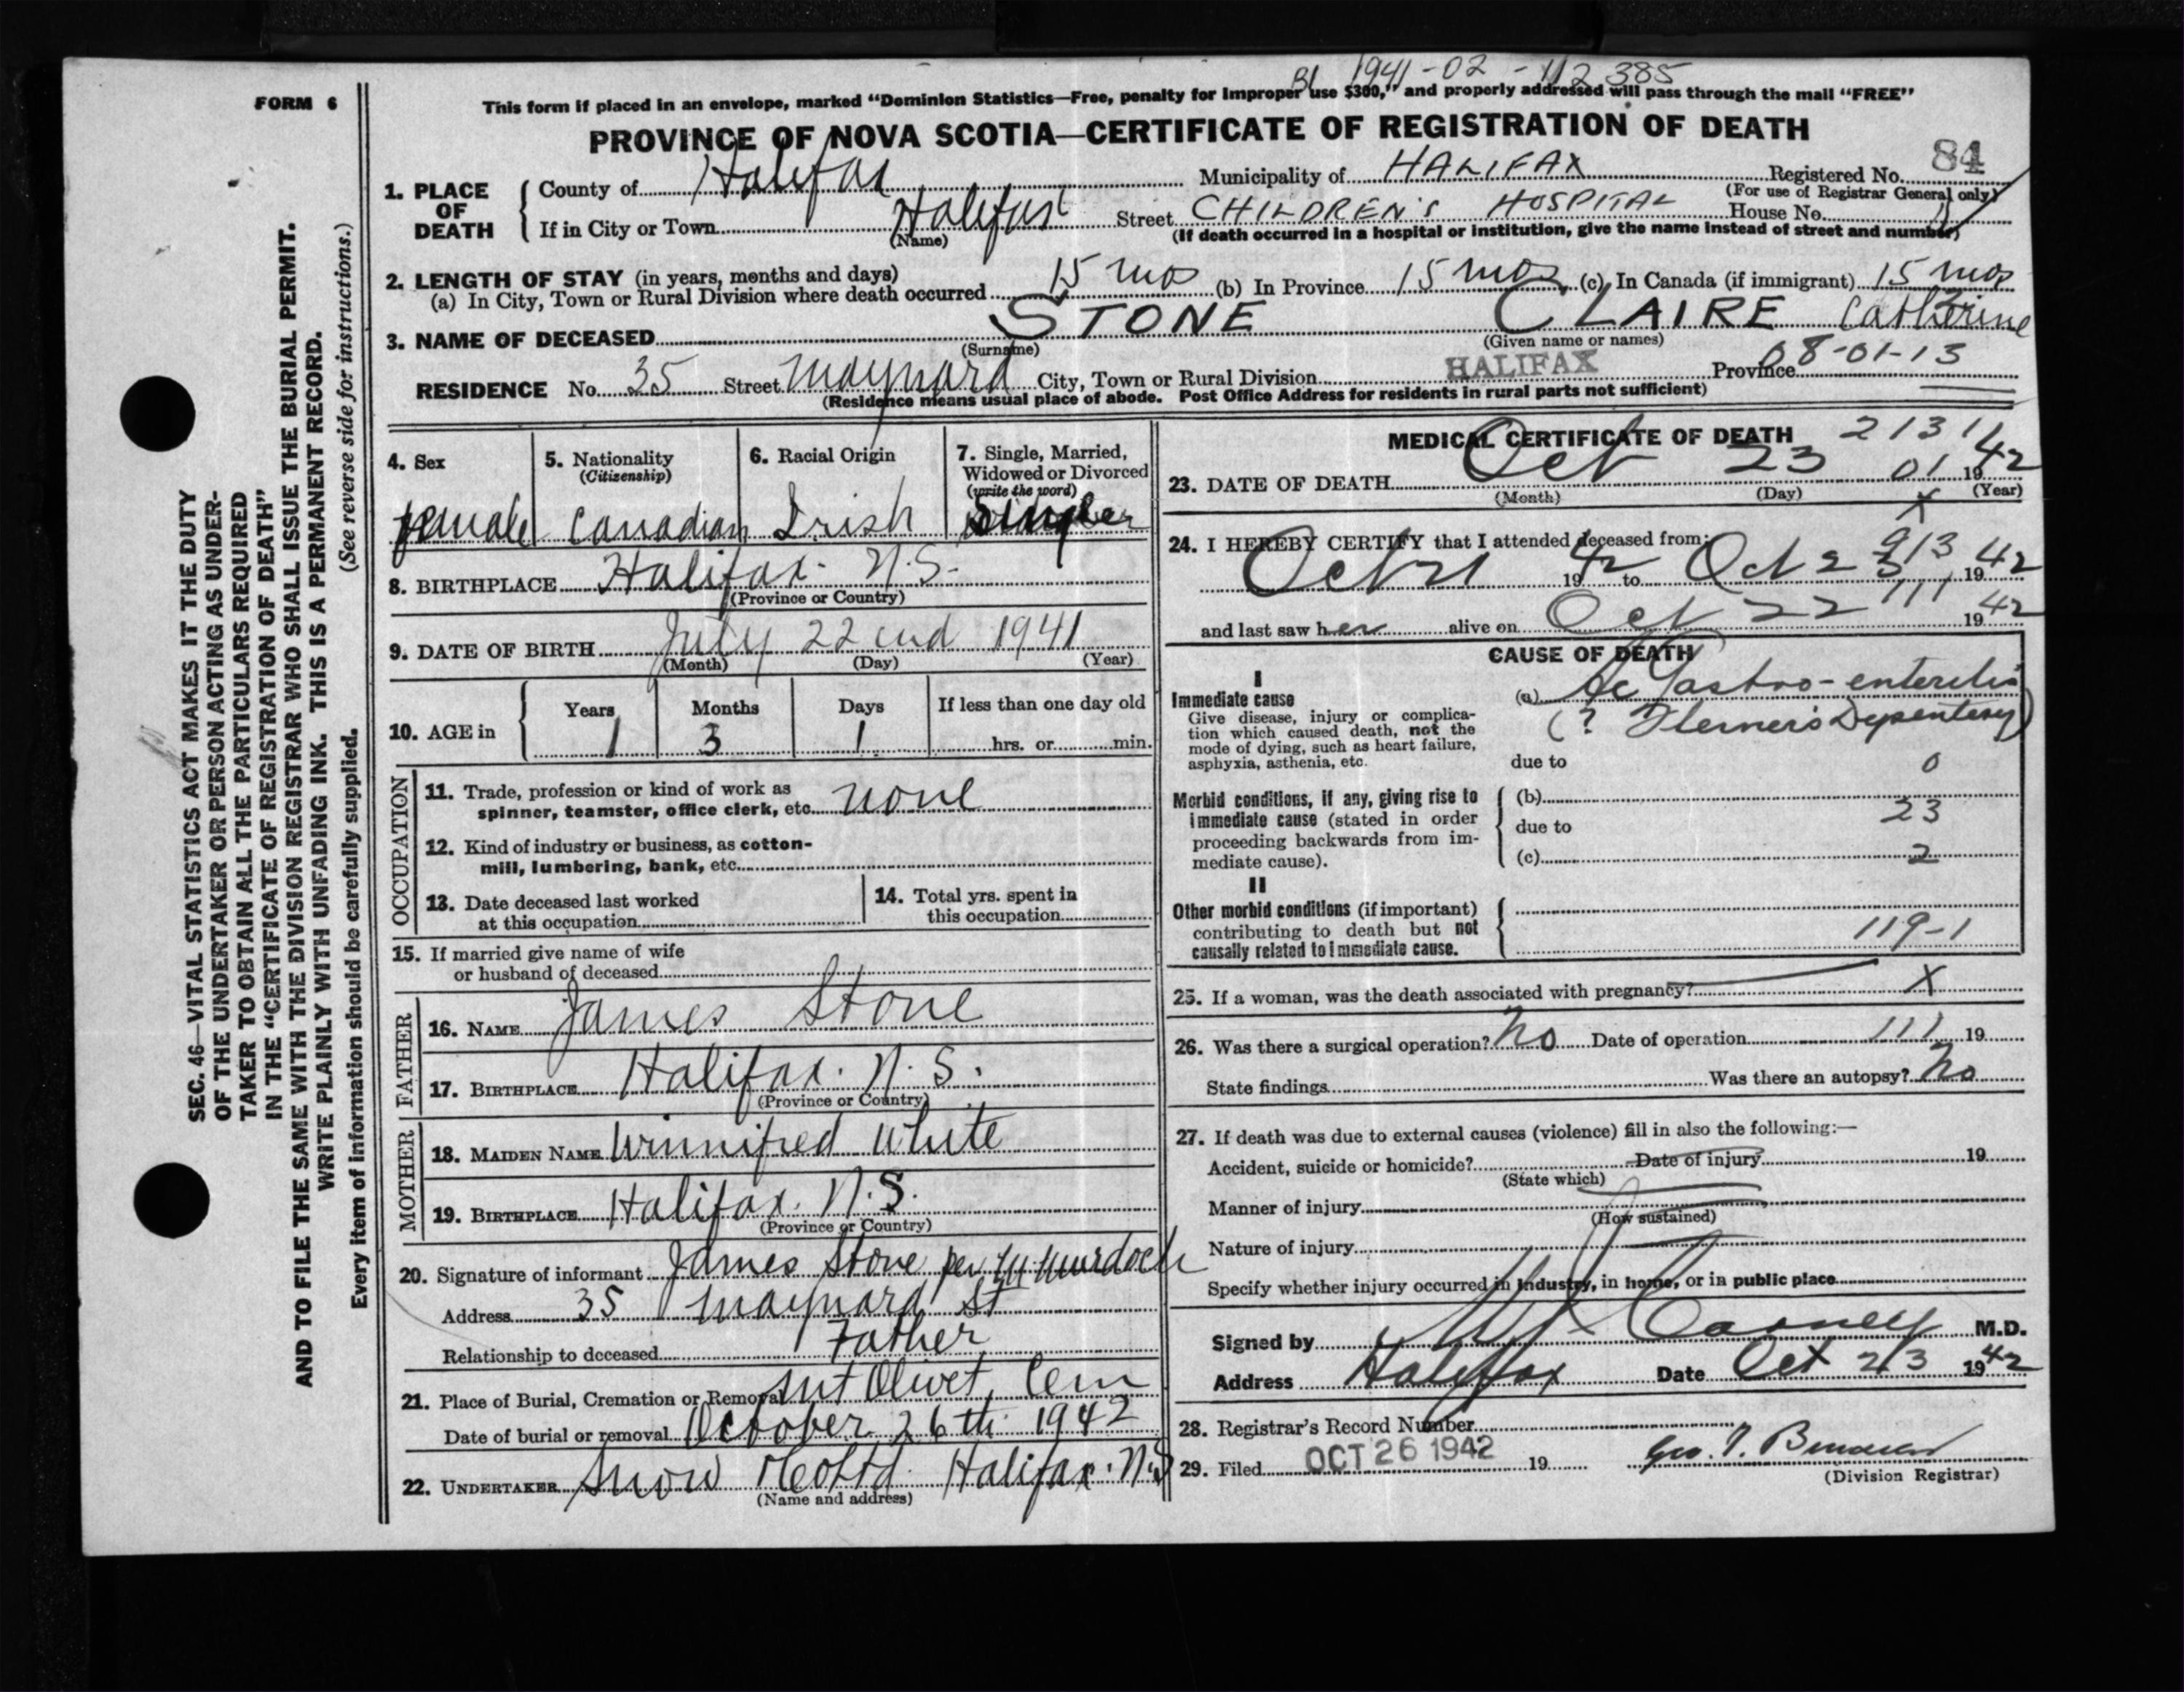 Bl 1941-02-112385
FORM 6
This form if placed in an envelope, marked “Dominion Statistics—Free, penalty for improper use $300,” and properly addressed will pass through the mail “FREE”
PROVINCE OF NOVA SCOTIA—CERTIFICATE OF REGISTRATION OF DEATH
84
1. PLACE OF DEATH
County of Halifax Municipality of HALIFAX Registered No.
(For use of Registrar General only)
If in City or Town Halifax Street CHILDREN'S HOSPITAL House No.
(Name) (If death occurred in a hospital or institution, give the name instead of street and number)
2. LENGTH OF STAY (in years, months and days)
(a) In City, Town or Rural Division where death occurred 15 mos (b) In Province 15 mos (c) In Canada (if immigrant) 15 mos
3. NAME OF DECEASED STONE CLAIRE Catherine
(Surname) (Given name or names)
RESIDENCE No. 35 Street Maynard City, Town or Rural Division HALIFAX Province 08-01-13
(Residence means usual place of abode. Post Office Address for residents in rural parts not sufficient)
4. Sex
female
5. Nationality
(Citizenship)
Canadian
6. Racial Origin
Irish
7. Single, Married,
Widowed or Divorced
(write the word)
Single
8. BIRTHPLACE Halifax. N.S.
(Province or Country)
9. DATE OF BIRTH July 22nd 1941
(Month) (Day) (Year)
10. AGE in
Years Months Days If less than one day old
1 3 1 hrs. or min.
OCCUPATION
11. Trade, profession or kind of work as
spinner, teamster, office clerk, etc. none
12. Kind of industry or business, as cotton-
mill, lumbering, bank, etc.
13. Date deceased last worked
at this occupation
14. Total yrs. spent in
this occupation
15. If married give name of wife
or husband of deceased
FATHER
16. NAME James Stone
17. BIRTHPLACE Halifax. N.S.
(Province or Country)
MOTHER
18. MAIDEN NAME Winnifred White
19. BIRTHPLACE Halifax. N.S.
(Province or Country)
20. Signature of informant James Stone per Murdoch
Address 35 Maynard St
Relationship to deceased Father
21. Place of Burial, Cremation or Removal Mt Olivet Cem
Date of burial or removal October 26th 1942
22. UNDERTAKER Snow & Co Ltd. Halifax. N.S
(Name and address)
MEDICAL CERTIFICATE OF DEATH 21311
23. DATE OF DEATH Oct 23 01 1942
(Month) (Day) (Year)
x
24. I HEREBY CERTIFY that I attended deceased from:
913
Oct 21 1942 to Oct 23 1942
111
and last saw her alive on Oct 22 1942
CAUSE OF DEATH
I
Immediate cause
Give disease, injury or complica-
tion which caused death, not the
mode of dying, such as heart failure,
asphyxia, asthenia, etc.
(a) Ac Gastro-enteritis
(? Flexner's Dysentery)
due to 0
Morbid conditions, if any, giving rise to
immediate cause (stated in order
proceeding backwards from im-
mediate cause).
(b)
due to 23
(c) 2
II
Other morbid conditions (if important)
contributing to death but not
causally related to immediate cause.
119-1
25. If a woman, was the death associated with pregnancy? X
26. Was there a surgical operation? No Date of operation 111 19
State findings Was there an autopsy? No
27. If death was due to external causes (violence) fill in also the following:—
Accident, suicide or homicide? Date of injury 19
(State which)
Manner of injury
(How sustained)
Nature of injury
Specify whether injury occurred in industry, in home, or in public place
Signed by Carney M.D.
Address Halifax Date Oct 23 1942
28. Registrar's Record Number
29. Filed OCT 26 1942 19 Geo. T.
(Division Registrar)
SEC. 46—VITAL STATISTICS ACT MAKES IT THE DUTY
OF THE UNDERTAKER OR PERSON ACTING AS UNDER-
TAKER TO OBTAIN ALL THE PARTICULARS REQUIRED
IN THE “CERTIFICATE OF REGISTRATION OF DEATH”
AND TO FILE THE SAME WITH THE DIVISION REGISTRAR WHO SHALL ISSUE THE BURIAL PERMIT.
WRITE PLAINLY WITH UNFADING INK. THIS IS A PERMANENT RECORD.
Every item of information should be carefully supplied. (See reverse side for instructions.)